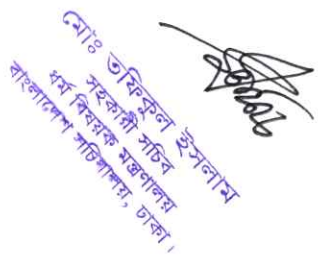 মোঃ তফিকুল ইসলাম
সহকারী সচিব
ধর্ম বিষয়ক মন্ত্রণালয়
বাংলাদেশ সচিবালয়, ঢাকা।